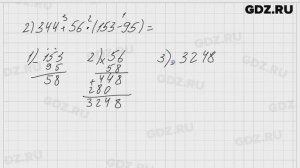 GDZ.RU
3 2 1
2) 344 + 56 · (153 - 95) =
1) 153 2) 56 3) 3248
- 95 × 58
58 + 448
280
3248
GDZ.RU